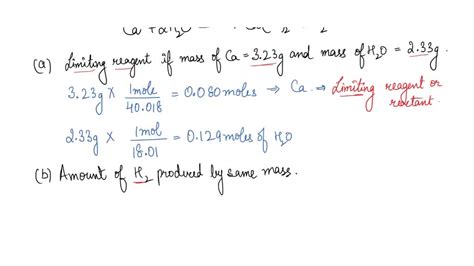 (a) Limiting reagent if mass of Ca = 3.23g and mass of H₂O = 2.33g
3.23g × 1mole/40.018 = 0.080moles ⇒ Ca → Limiting reagent or reactant.
2.33g × 1mol/18.01 = 0.129moles of H₂O
(b) Amount of H₂ produced by same mass.